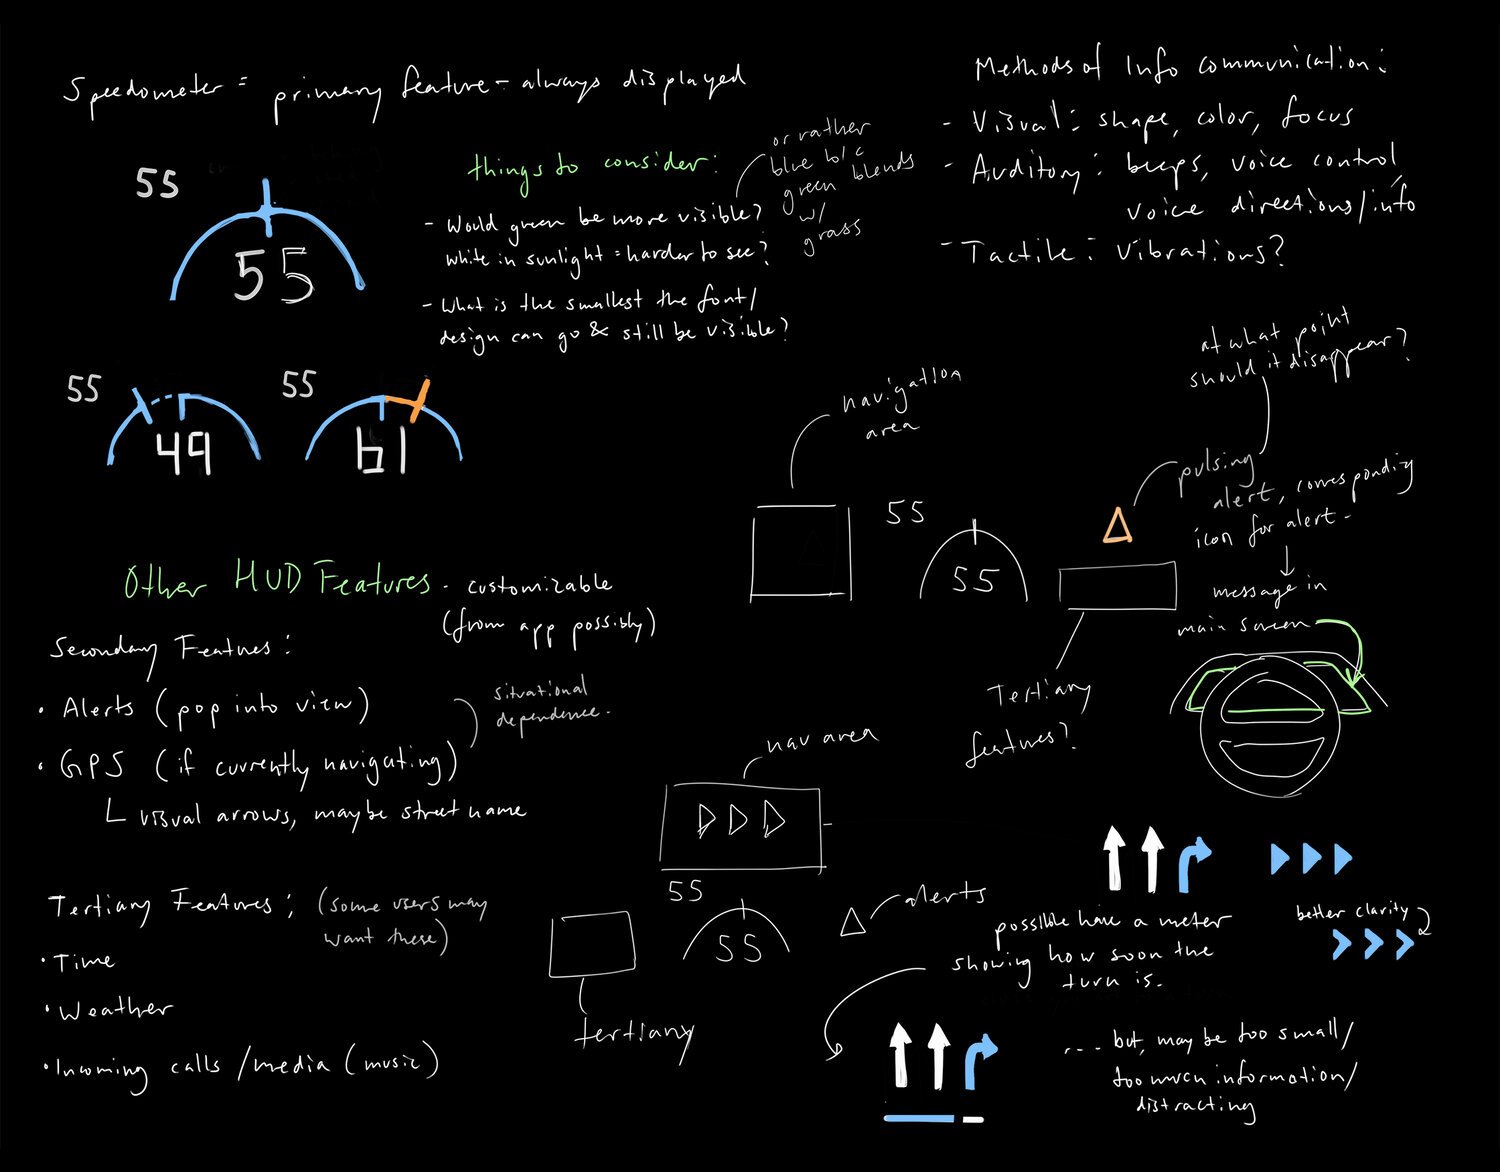 Speedometer = primary feature - always displayed
55
55
things to consider:
- Would green be more visible?
white in sunlight = harder to see?
or rather
blue b/c
green blends
w/
grass
- What is the smallest the font/
design can go & still be visible?
Methods of Info communication:
- Visual: shape, color, focus
- Auditory: beeps, voice control,
voice directions/info
- Tactile: Vibrations?
55
49
55
61
navigation
area
55
55
at what point
should it disappear?
pulsing
alert, corresponding
icon for alert -
message in
main screen
Tertiary
features?
Other HUD Features - customizable
(from app possibly)
Secondary Features:
• Alerts (pop into view)
• GPS (if currently navigating)
situational
dependence.
L visual arrows, maybe street name
Tertiary Features: (some users may
want these)
• Time
• Weather
• Incoming calls/media (music)
nav area
55
55
alerts
tertiary
possible have a meter
showing how soon the
turn is.
better clarity?
---- but, may be too small/
too much information/
distracting